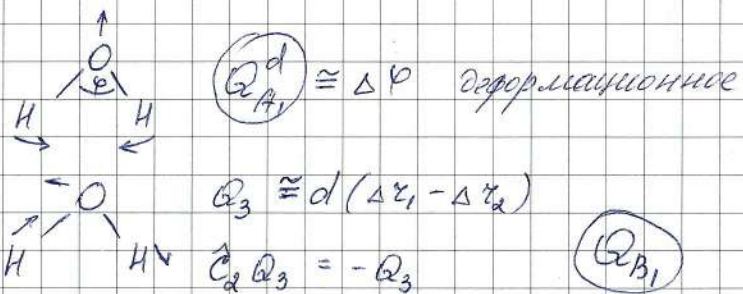 O
φ
H H
Q^d_{A₁} ≅ Δφ деформационное
O
H H
Q₃ ≅ d (Δr₁ - Δr₂)
Ĉ₂ Q₃ = - Q₃
Q_{B₁}